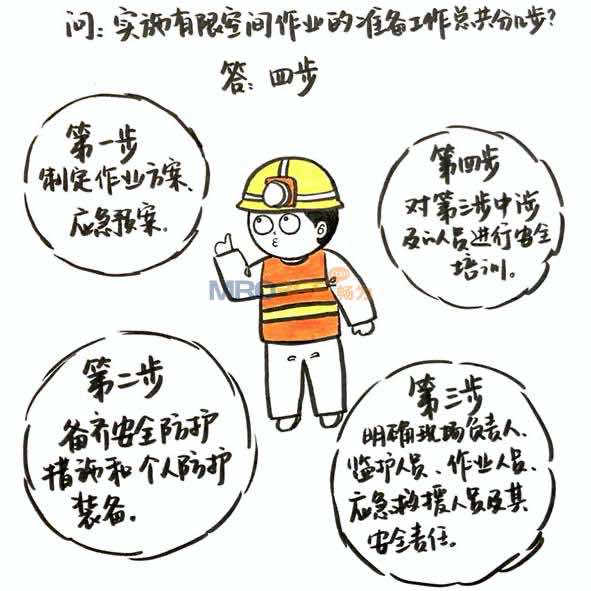 问：实施有限空间作业的准备工作总共分几步？
答：四步
第一步
制定作业方案、
应急预案.
第二步
备齐安全防护
措施和个人防护
装备.
第三步
明确现场负责人、
监护人员、作业人员、
应急救援人员及其
安全责任。
第四步
对第三步中涉
及的人员进行安全
培训。